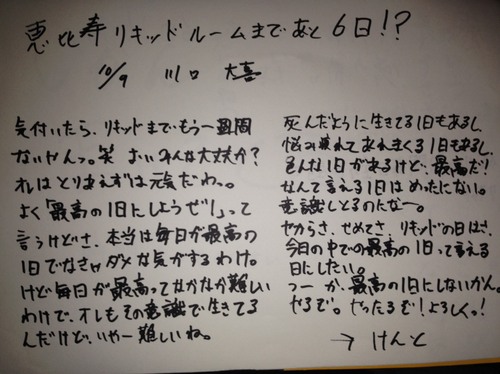 恵比寿リキッドルームまであと6日!?
10/9 川口 大喜
気付いたら、リキッドまでもう一週間
ないやんっ。笑 よいみんな大丈夫か?
オレはとりあえずは元気だわっ。
よく「最高の1日にしようぜ!」って
言うけどさ、本当は毎日が最高の
1日でなきゃダメな気がするわけ。
けど毎日が最高ってなかなか難しい
わけで、オレもその意識で生きてる
んだけど、いやー難しいね。
死んだように生きてる1日もあるし、
悩み疲れてあれまくる1日もあるし、
色んな1日があるけど、最高だ!
なんて言える1日はめったにない。
意識しとるのになー。
やからさ、せめてさ、リキッドの日はさ、
今日の中での最高の1日って言える
日にしたい。
つーか、最高の1日にしないかん。
やるで。やったるぞ!よろしくっ!
→ けんと